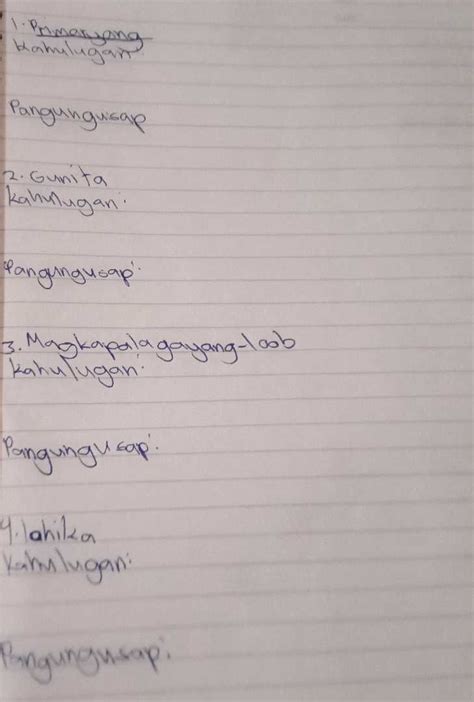 1. Primeryang
Kahulugan
Pangungusap
2. Gunita
Kahulugan:
Pangungusap:
3. Magkapalagayang-loob
Kahulugan:
Pangungusap:
4. lahika
Kahulugan:
Pangungusap: